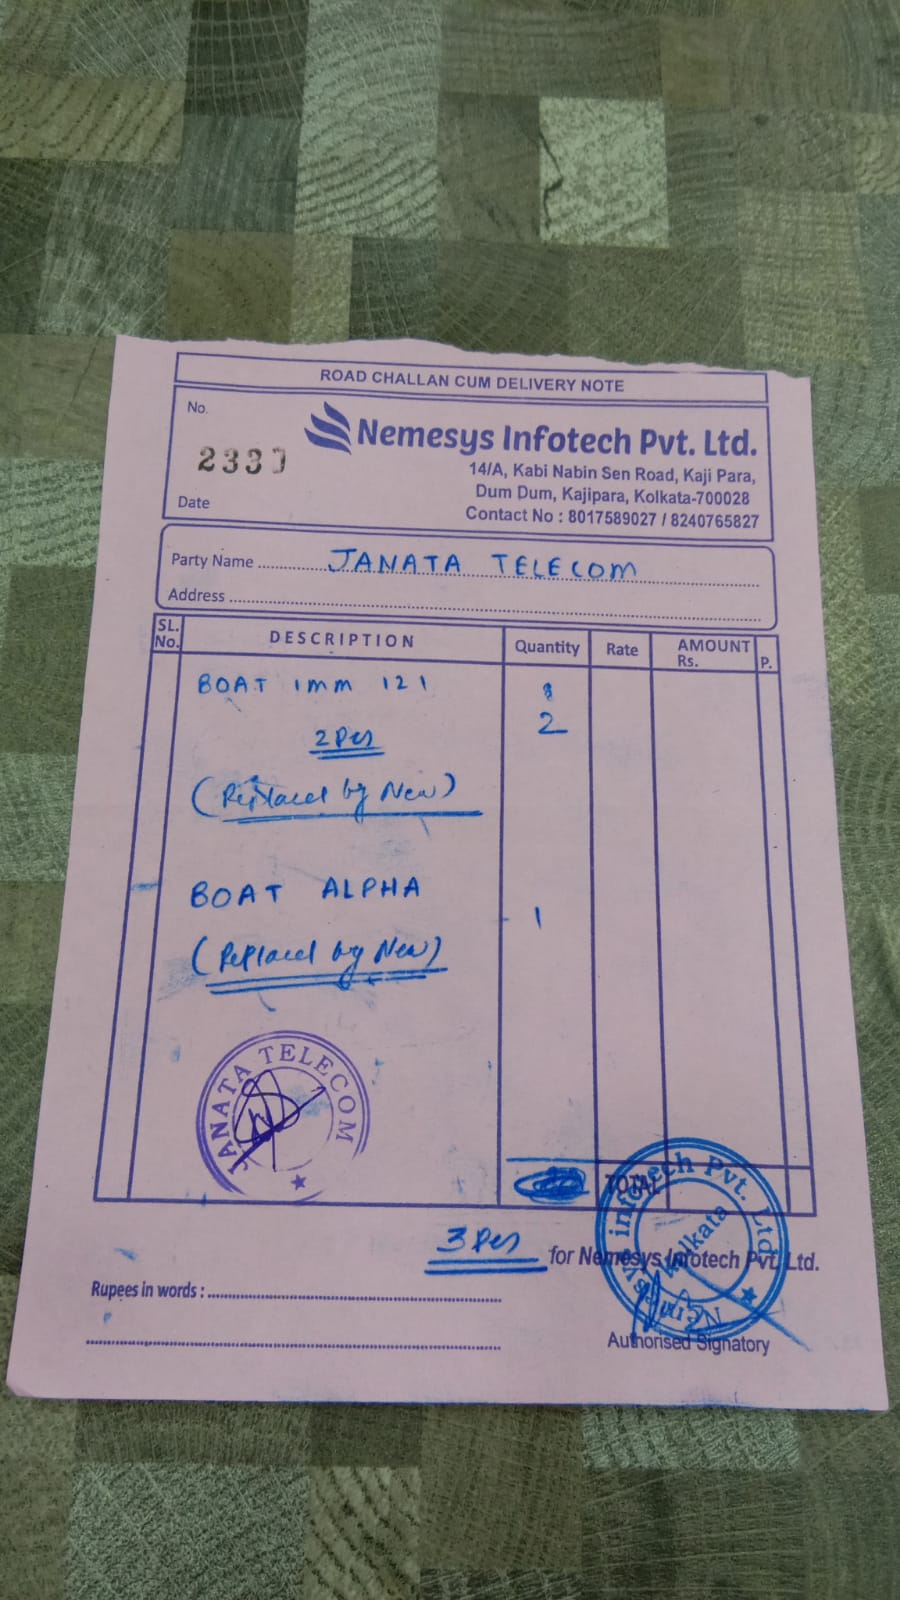 ROAD CHALLAN CUM DELIVERY NOTE
No.
Nemesys Infotech Pvt. Ltd.
233
14/A, Kabi Nabin Sen Road, Kaji Para,
Dum Dum, Kajipara, Kolkata-700028
Date
Contact No : 8017589027 / 8240765827
Party Name JANATA TELECOM
Address
SL. No. DESCRIPTION Quantity Rate AMOUNT Rs. P.
BOAT IMM 121
2
2 Pcs
(Replaced by New)
BOAT ALPHA 1
(Replaced by New)
JANATA TELECOM
TOTAL
3 Pcs
for Nemesys Infotech Pvt. Ltd.
Nemesys Infotech Pvt. Ltd.
Kolkata
Rupees in words :
Authorised Signatory